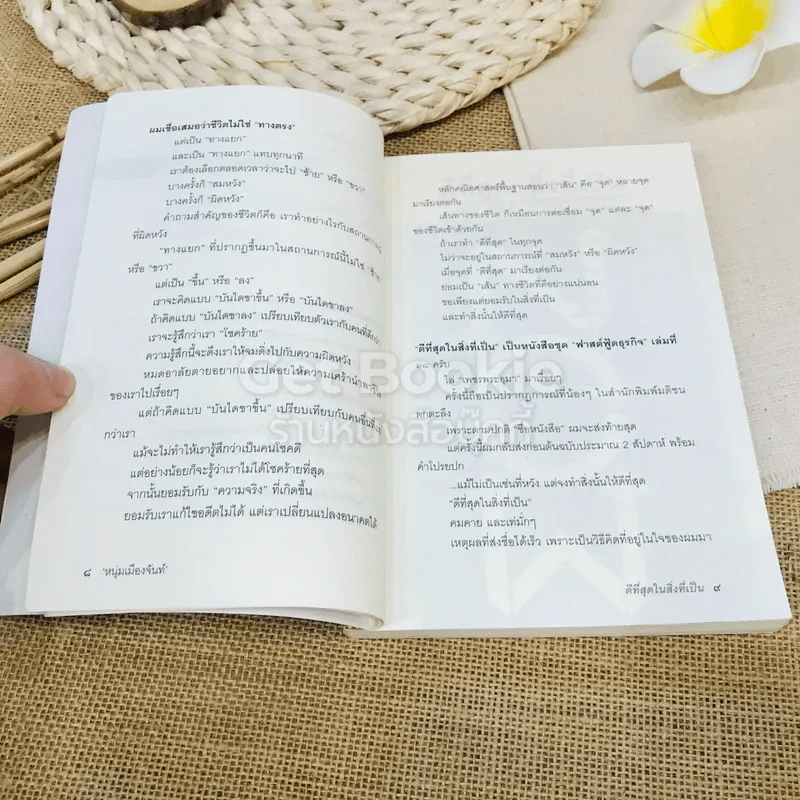 ผมเชื่อเสมอว่าชีวิตไม่ใช่ "ทางตรง"
แต่เป็น "ทางแยก"
และเป็น "ทางแยก" แทบทุกนาที
เราต้องเลือกตลอดเวลาว่าจะไป "ซ้าย" หรือ "ขวา"
บางครั้งก็ "สมหวัง"
บางครั้งก็ "ผิดหวัง"
คำถามสำคัญของชีวิตก็คือ เราทำอย่างไรกับสถานการณ์
ที่ผิดหวัง
"ทางแยก" ที่ปรากฏขึ้นมาในสถานการณ์นี้ไม่ใช่ "ซ้าย"
หรือ "ขวา"
แต่เป็น "ขึ้น" หรือ "ลง"
เราจะคิดแบบ "บันไดขาขึ้น" หรือ "บันไดขาลง"
ถ้าคิดแบบ "บันไดขาลง" เปรียบเทียบตัวเรากับคนที่ดีกว่า
เราจะรู้สึกว่าเรา "โชคร้าย"
ความรู้สึกนี้จะดึงเราให้จมดิ่งไปกับความผิดหวัง
หมดอาลัยตายอยากและปล่อยให้ความเศร้านำพาชีวิต
ของเราไปเรื่อยๆ
แต่ถ้าคิดแบบ "บันไดขาขึ้น" เปรียบเทียบกับคนอื่นที่แย่
กว่าเรา
แม้จะไม่ทำให้เรารู้สึกว่าเป็นคนโชคดี
แต่อย่างน้อยก็จะรู้ว่าเราไม่ได้โชคร้ายที่สุด
จากนั้นยอมรับกับ "ความจริง" ที่เกิดขึ้น
ยอมรับเราแก้ไขอดีตไม่ได้ แต่เราเปลี่ยนแปลงอนาคตได้
๘ 'หนุ่มเมืองจันท์'
หลักคณิตศาสตร์พื้นฐานสอนว่า "เส้น" คือ "จุด" หลายจุด
มาเรียงต่อกัน
เส้นทางของชีวิต ก็เหมือนการต่อเชื่อม "จุด" แต่ละ "จุด"
ของชีวิตเข้าด้วยกัน
ถ้าเราทำ "ดีที่สุด" ในทุกจุด
ไม่ว่าจะอยู่ในสถานการณ์ที่ "สมหวัง" หรือ "ผิดหวัง"
เมื่อจุดที่ "ดีที่สุด" มาเรียงต่อกัน
ย่อมเป็น "เส้น" ทางชีวิตที่ดีอย่างแน่นอน
ขอเพียงแต่ยอมรับในสิ่งที่เป็น
และทำสิ่งนั้นให้ดีที่สุด
"ดีที่สุดในสิ่งที่เป็น" เป็นหนังสือชุด "ฟาสต์ฟู้ดธุรกิจ" เล่มที่
๑๘ ครับ
ไล่ "เพชรพระอุมา" มาเรื่อยๆ
ครั้งนี้ถือเป็นปรากฏการณ์ที่น้องๆ ในสำนักพิมพ์มติชน
ตกตะลึง
เพราะตามปกติ "ชื่อหนังสือ" ผมจะส่งท้ายสุด
แต่ครั้งนี้ผมกลับส่งก่อนต้นฉบับประมาณ 2 สัปดาห์ พร้อม
คำโปรยปก
...แม้ไม่เป็นเช่นที่หวัง แต่จงทำสิ่งนั้นให้ดีที่สุด
"ดีที่สุดในสิ่งที่เป็น"
คมคาย และเท่มั่กๆ
เหตุผลที่ส่งชื่อได้เร็ว เพราะเป็นวิธีคิดที่อยู่ในใจของผมมา
ดีที่สุดในสิ่งที่เป็น ๙
Get Bookie
ร้านหนังสือบุ๊คกี้